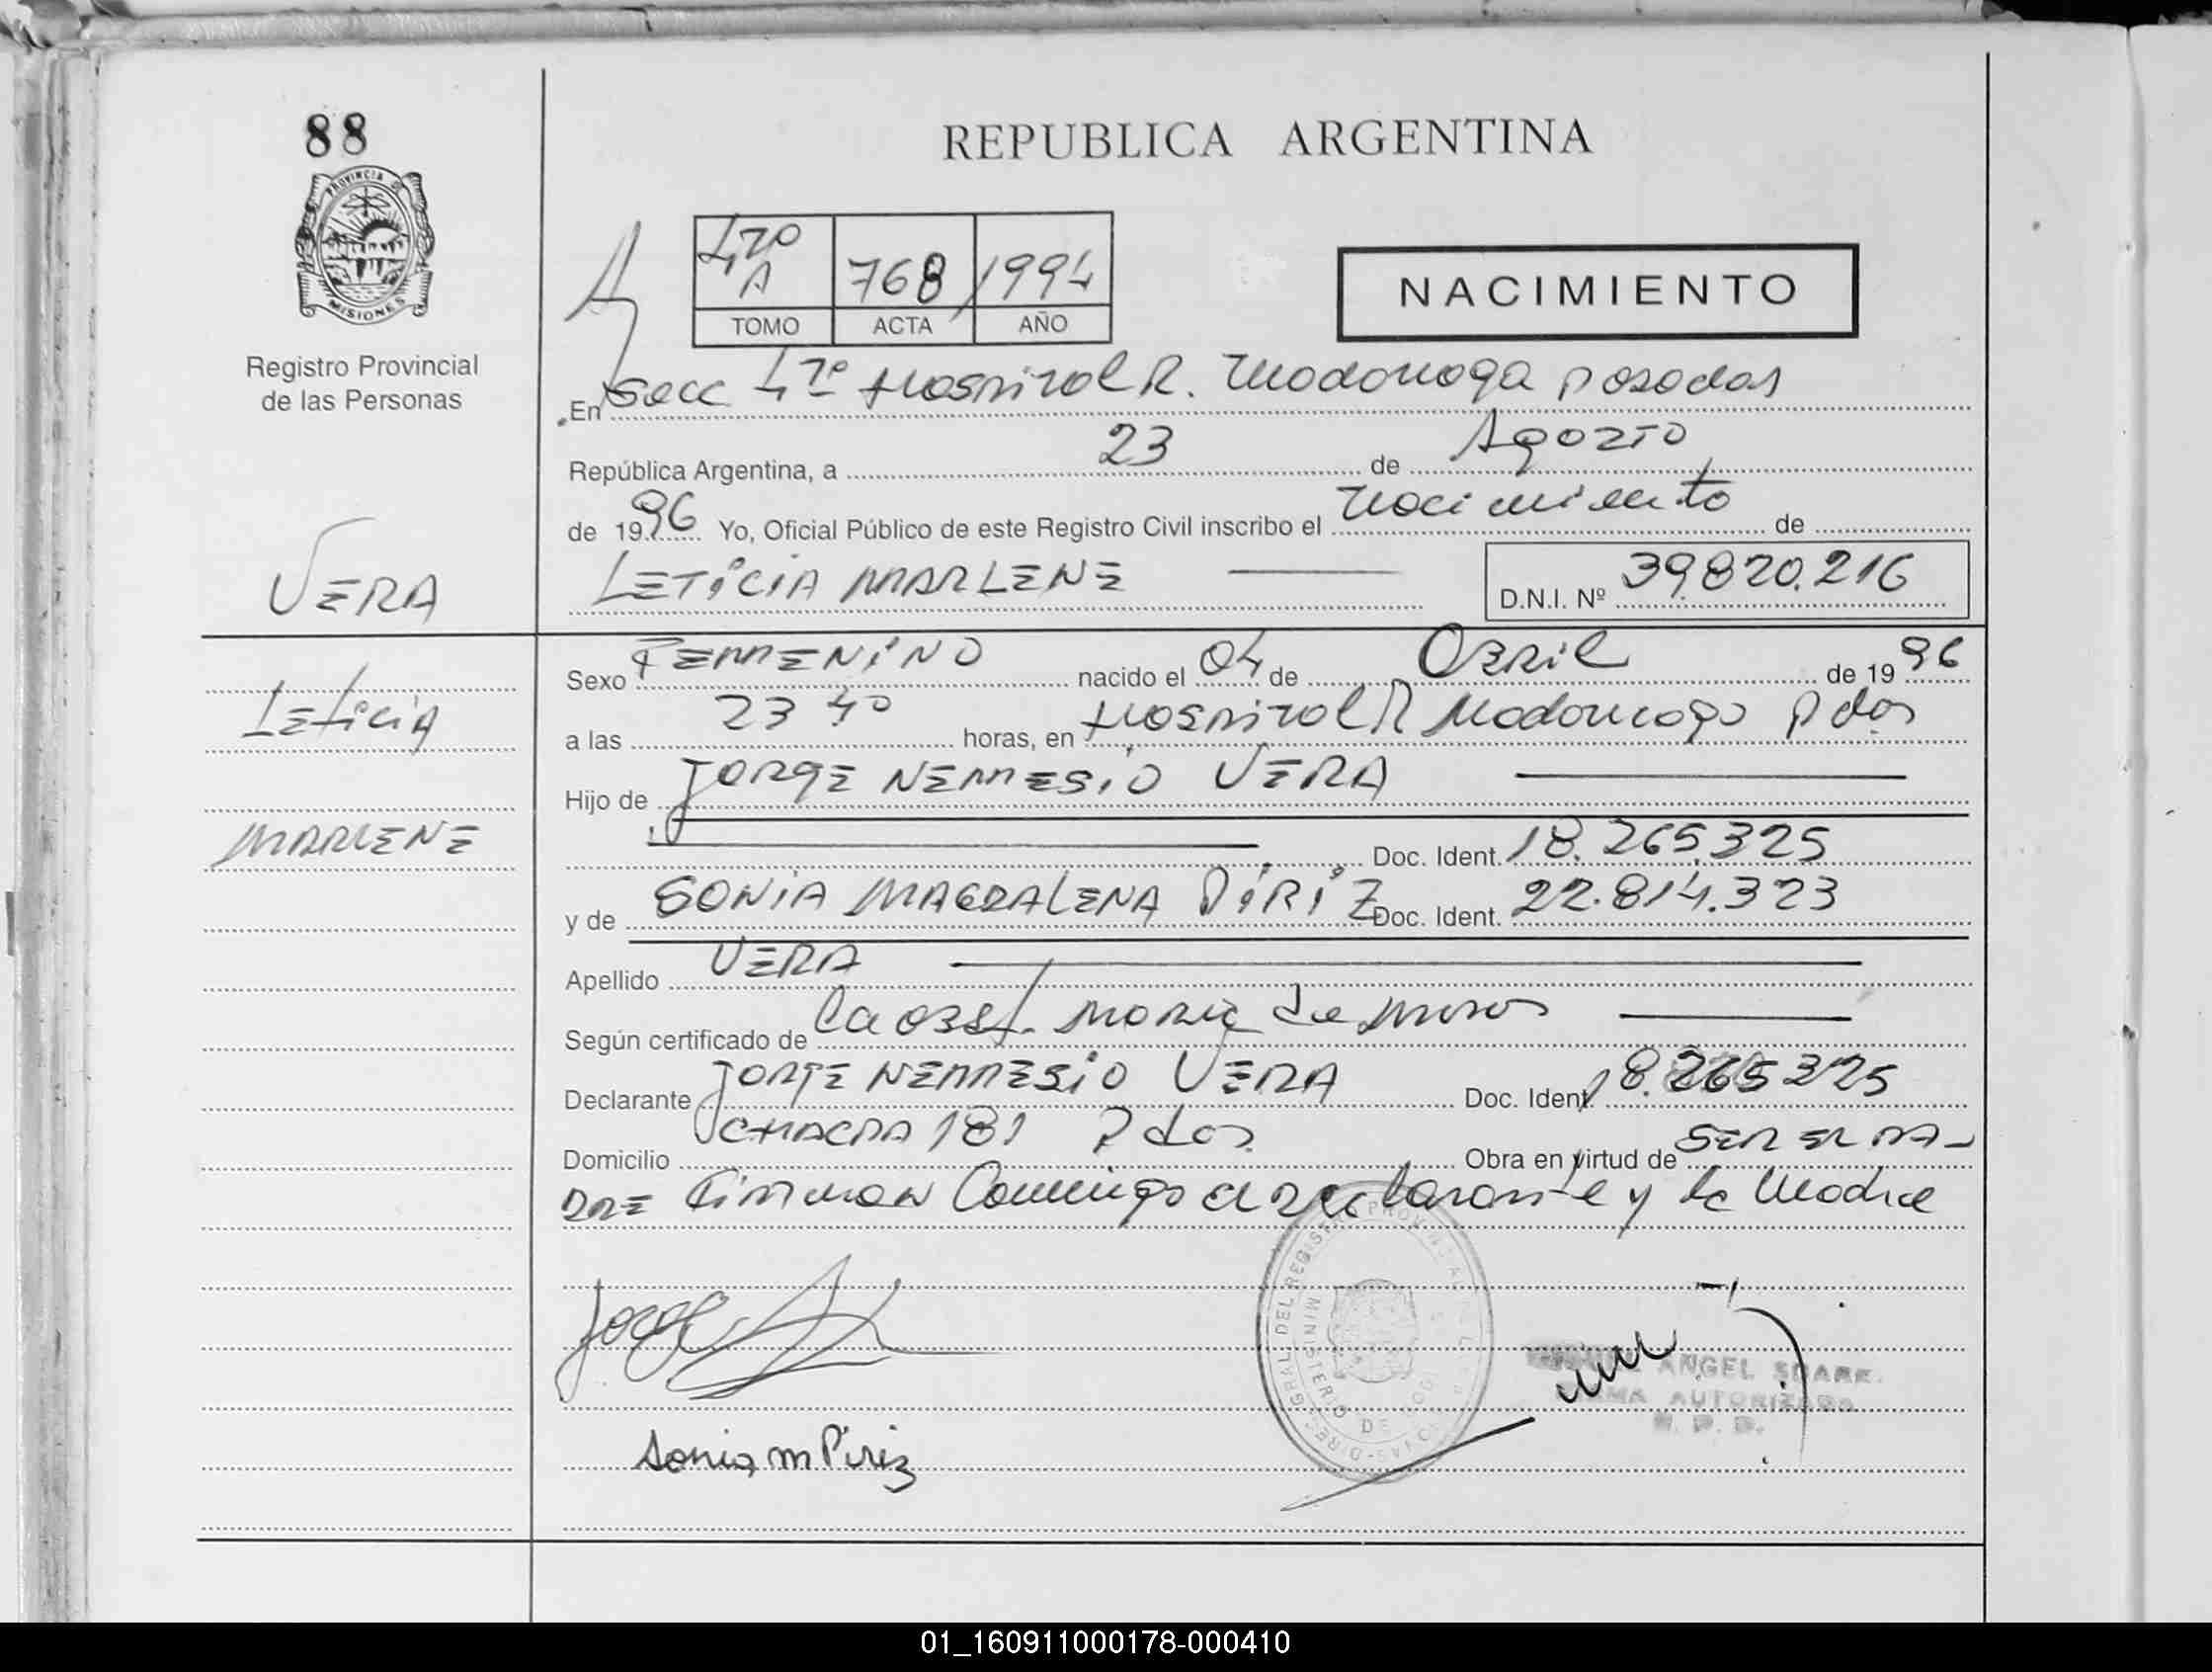 88
REPUBLICA ARGENTINA
PROVINCIA DE
MISIONES
Registro Provincial
de las Personas
4TO A 768 1994
TOMO ACTA AÑO
NACIMIENTO
En Secc 4TO Hospital R. Madariaga Posadas
República Argentina, a 23 de Agosto
de 1996 Yo, Oficial Público de este Registro Civil inscribo el Nacimiento de
VERA
LETICIA MARLENE
D.N.I. Nº 39.820.216
Leticia
MARLENE
Sexo FEMENINO nacido el 04 de Abril de 1996
a las 23 40 horas, en Hospital R Madariaga Pdas
Hijo de JORGE NEMESIO VERA
Doc. Ident. 18.265.325
y de SONIA MAGDALENA PIRIZ Doc. Ident. 22.814.323
Apellido VERA
Según certificado de La Obst. Maria de
Declarante JORGE NEMESIO VERA Doc. Ident. 18.265325
Domicilio CHACRA 181 Pdas Obra en virtud de SER EL PA-
DRE Firman Conmigo el declarante y la Madre
Jorge
Sonia m Piriz
ANGEL
AUTORIZADA
01_160911000178-000410